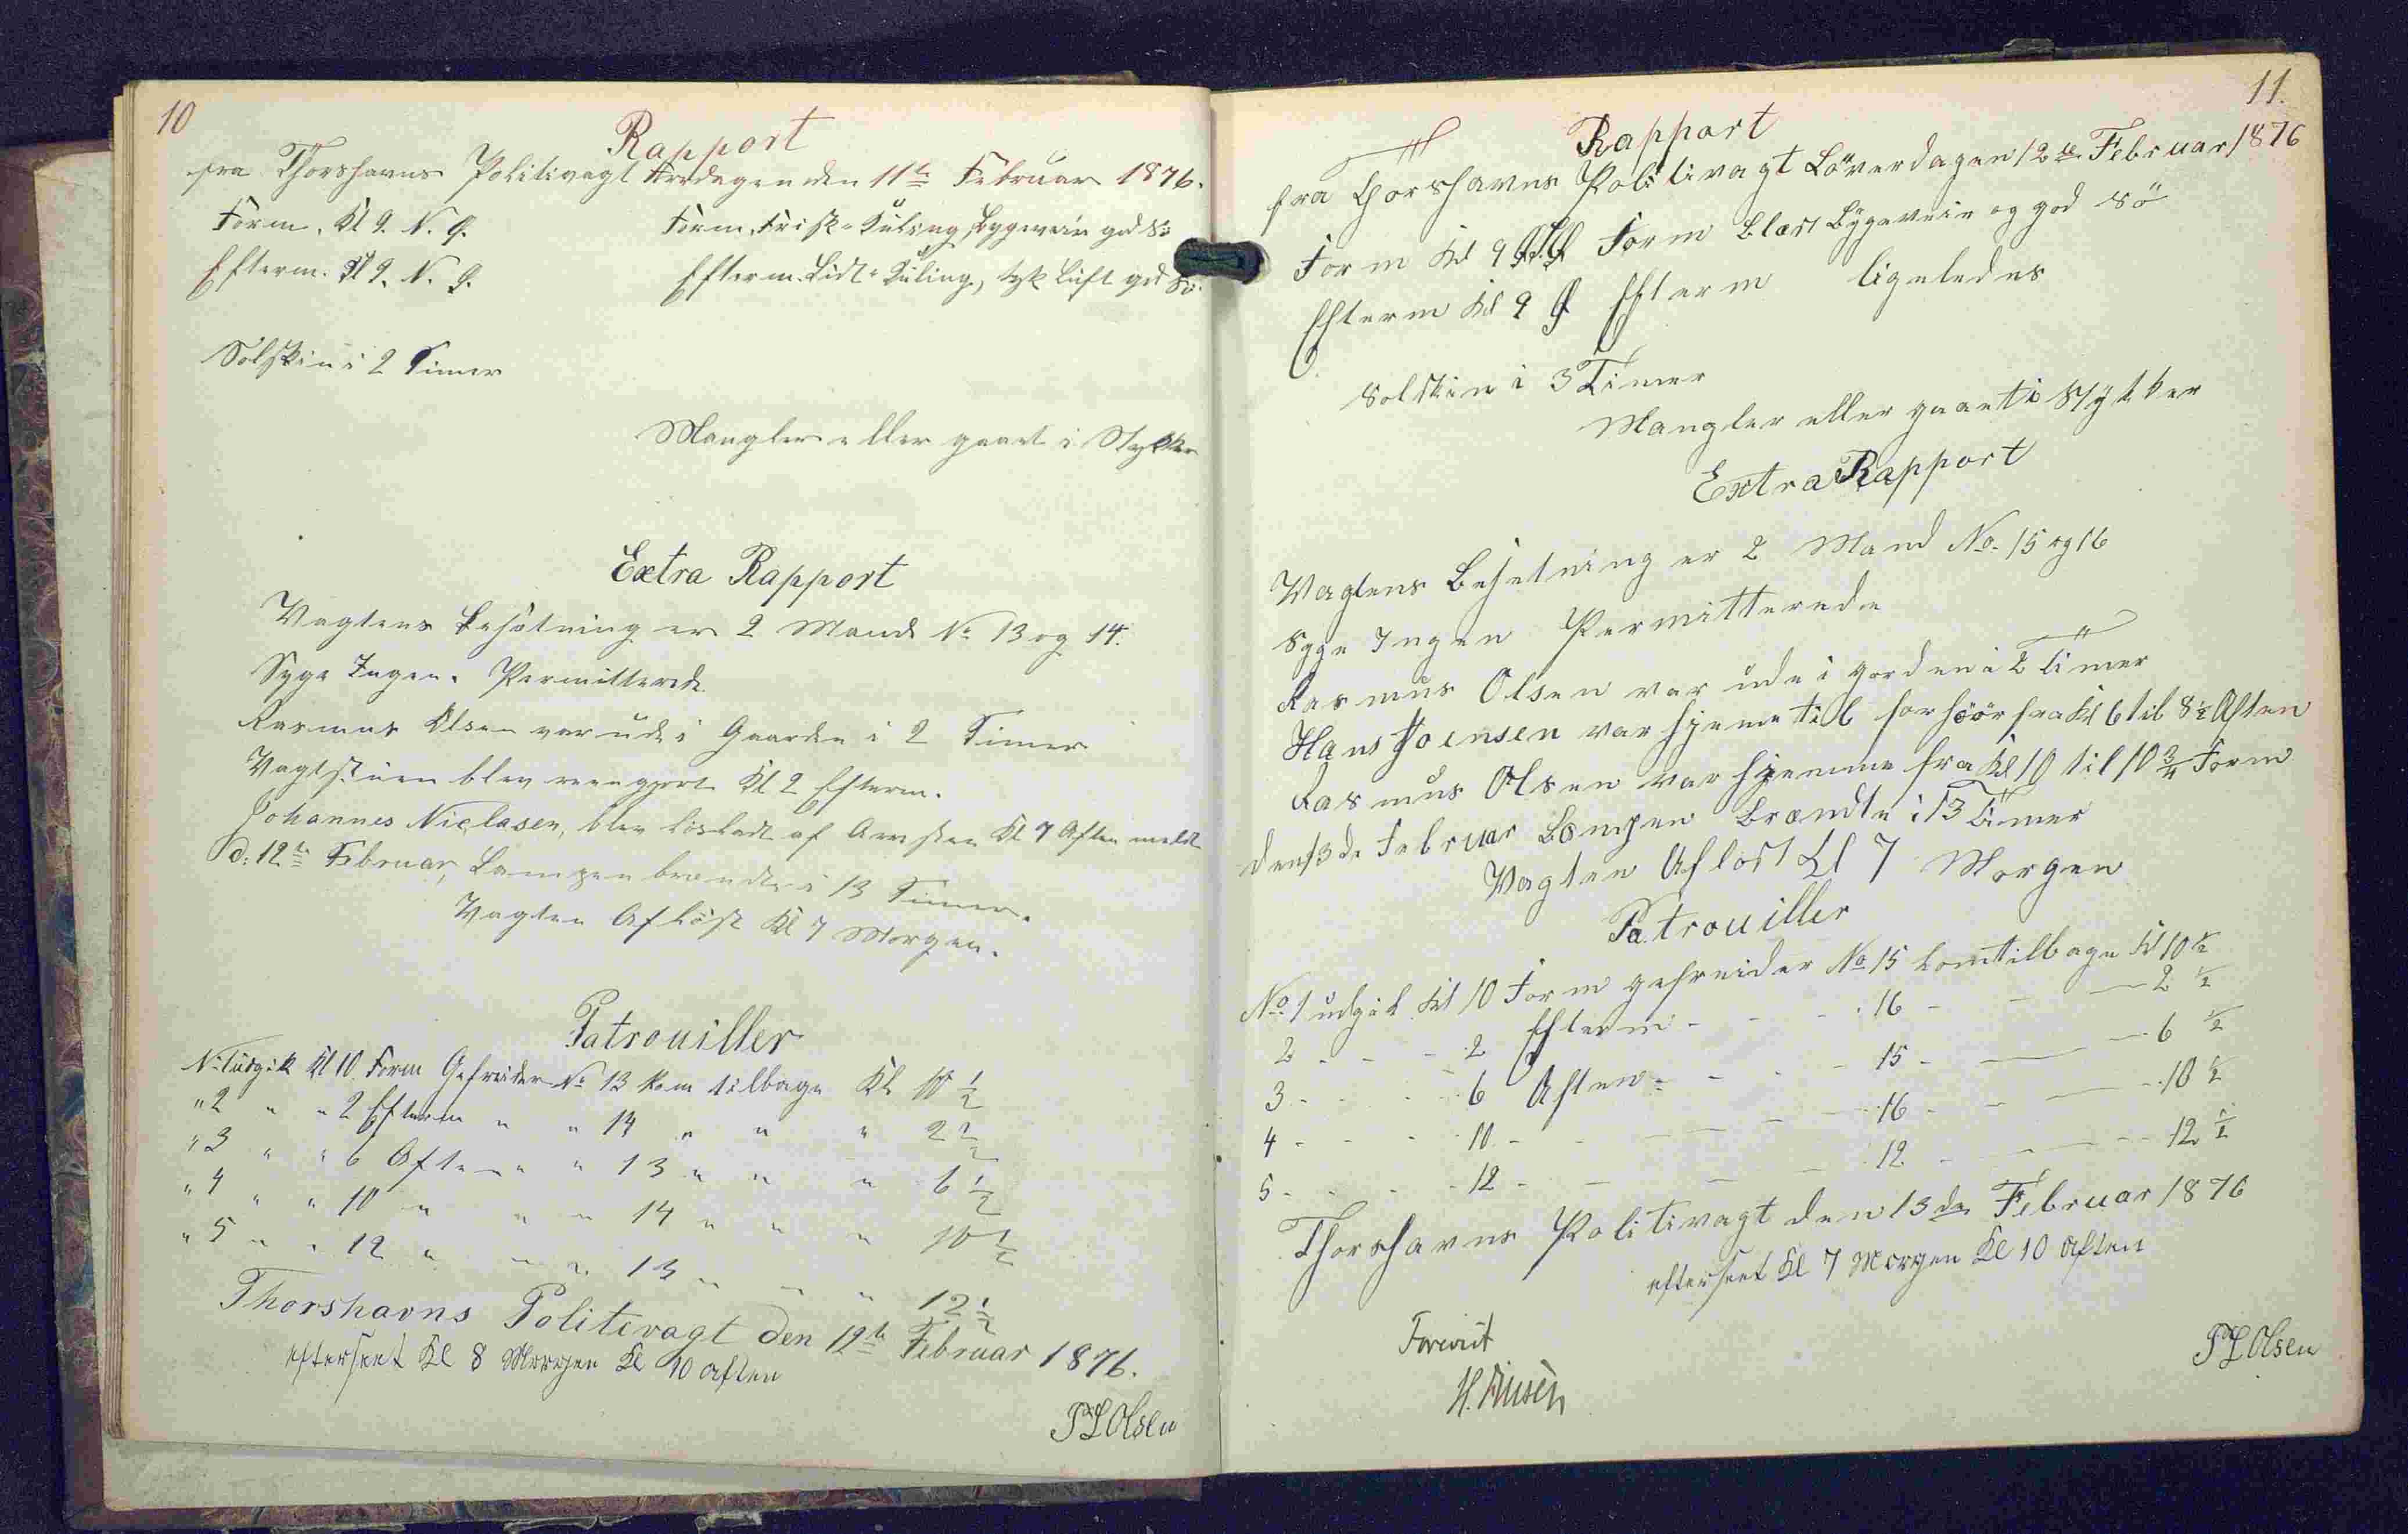 10
Rapport
fra Thorshavns Politivagt Fredagen den 11te Februar 1876.
Form. Kl 9. N. Ø.
Form. Frisk-Kuling, Bygevein god Sö
Efterm. Kl 9. N. Ø.
Efterm. Lidt-Kuling, tyk Luft god Sö.
Solskin i 2 Timer
Mangler eller gaaet i Stykker
Extra Rapport
Vagtens Besætning er 2 Mand No 13 og 14.
Syge Ingen. Permitterede
Rasmus Olsen var ude i Gaarden i 2 Timer
Vagtstuen blev reengjort Kl 2 Efterm.
Johannes Niclasen, blev lösladt af Arresten Kl 7 Aften meldt
d: 12te Februar, Lampen brændte i 13 Timer.
Vagten Aflöst Kl 7 Morgen.
Patrouiller
No 1 udgik Kl 10 Form Gefreider No 13 kom tilbage Kl 10 1/2
" 2 " " 2 Efterm " " 14 " " " 2 1/2
" 3 " " 6 Aften " " 13 " " " 6 1/2
" 4 " " 10 " " " 14 " " " 10 1/2
" 5 " " 12 " " " 13 " " " 12 1/2
Thorshavns Politivagt den 12te Februar 1876.
efterseet Kl 8 Morgen Kl 10 Aften
PLOlsen
11.
Rapport
fra Thorshavns Politivagt Löverdagen 12te Februar 1876
Form Kl 9 Form Blæst Bygevein og god Sö
Efterm Kl 9 Ø Efterm ligeledes
Solskin i 3 Timer
Mangler eller gaaet i Stykker
Extra Rapport
Vagtens Besetning er 2 Mand No. 15 og 16
Syge Ingen Permitterede
Rasmus Olsen var ude i gorden i 2 Timer
Hans Joensen var hjeme til forhöör fra Kl 6 til 8 1/2 Aften
Rasmus Olsen var hjemme fra Kl 10 til 10 3/4 Form
den 13de Februar Lampen Brændte i 13 Timer
Vagten Aflöst Kl 7 Morgen
Patrouiller
No 1 udgik Kl 10 Form gefreider No 15 kom tilbage Kl 10 1/2
2 - - - 2 Efterm - - - 16 - - - 2 1/2
3 - - - 6 Aften - - - 15 - - - 6 1/2
4 - - - 10 - - - 16 - - - 10 1/2
5 - - - 12 - - - 12 - - - 12 1/2
Thorshavns Politivagt den 13de Februar 1876
efterseet Kl 7 Morgen Kl 10 Aften
PLOlsen